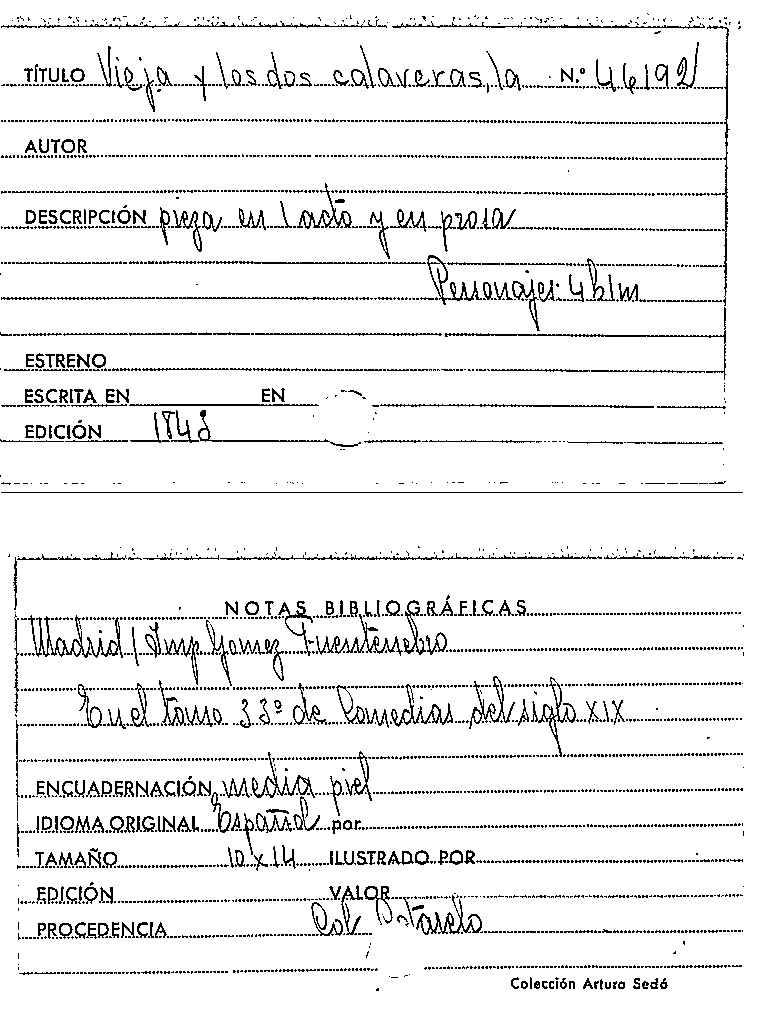 TÍTULO Vieja y los dos calaveras, la N.º 46192
AUTOR
DESCRIPCIÓN pieza en 1 acto y en prosa
Personajes: 4h1m
ESTRENO
ESCRITA EN EN
EDICIÓN
NOTAS BIBLIOGRÁFICAS
Madrid / Imp Gomez Fuentenebro
En el tomo 33º de Comedias del siglo XIX
ENCUADERNACIÓN media piel
IDIOMA ORIGINAL Español por
TAMAÑO 10 x 14 ILUSTRADO POR
EDICIÓN VALOR
PROCEDENCIA Col Cotarelo
Colección Arturo Sedó